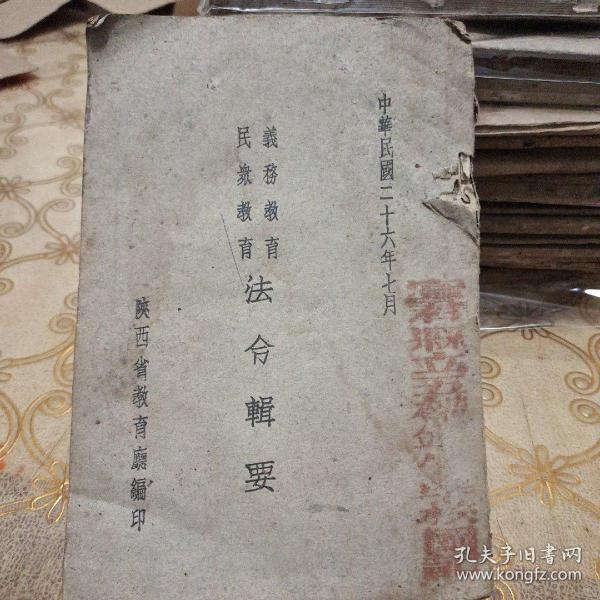 中華民國二十六年七月
義務教育
民衆教育
法令輯要
陝西省教育廳編印
孔夫子旧书网
www.kongfz.com